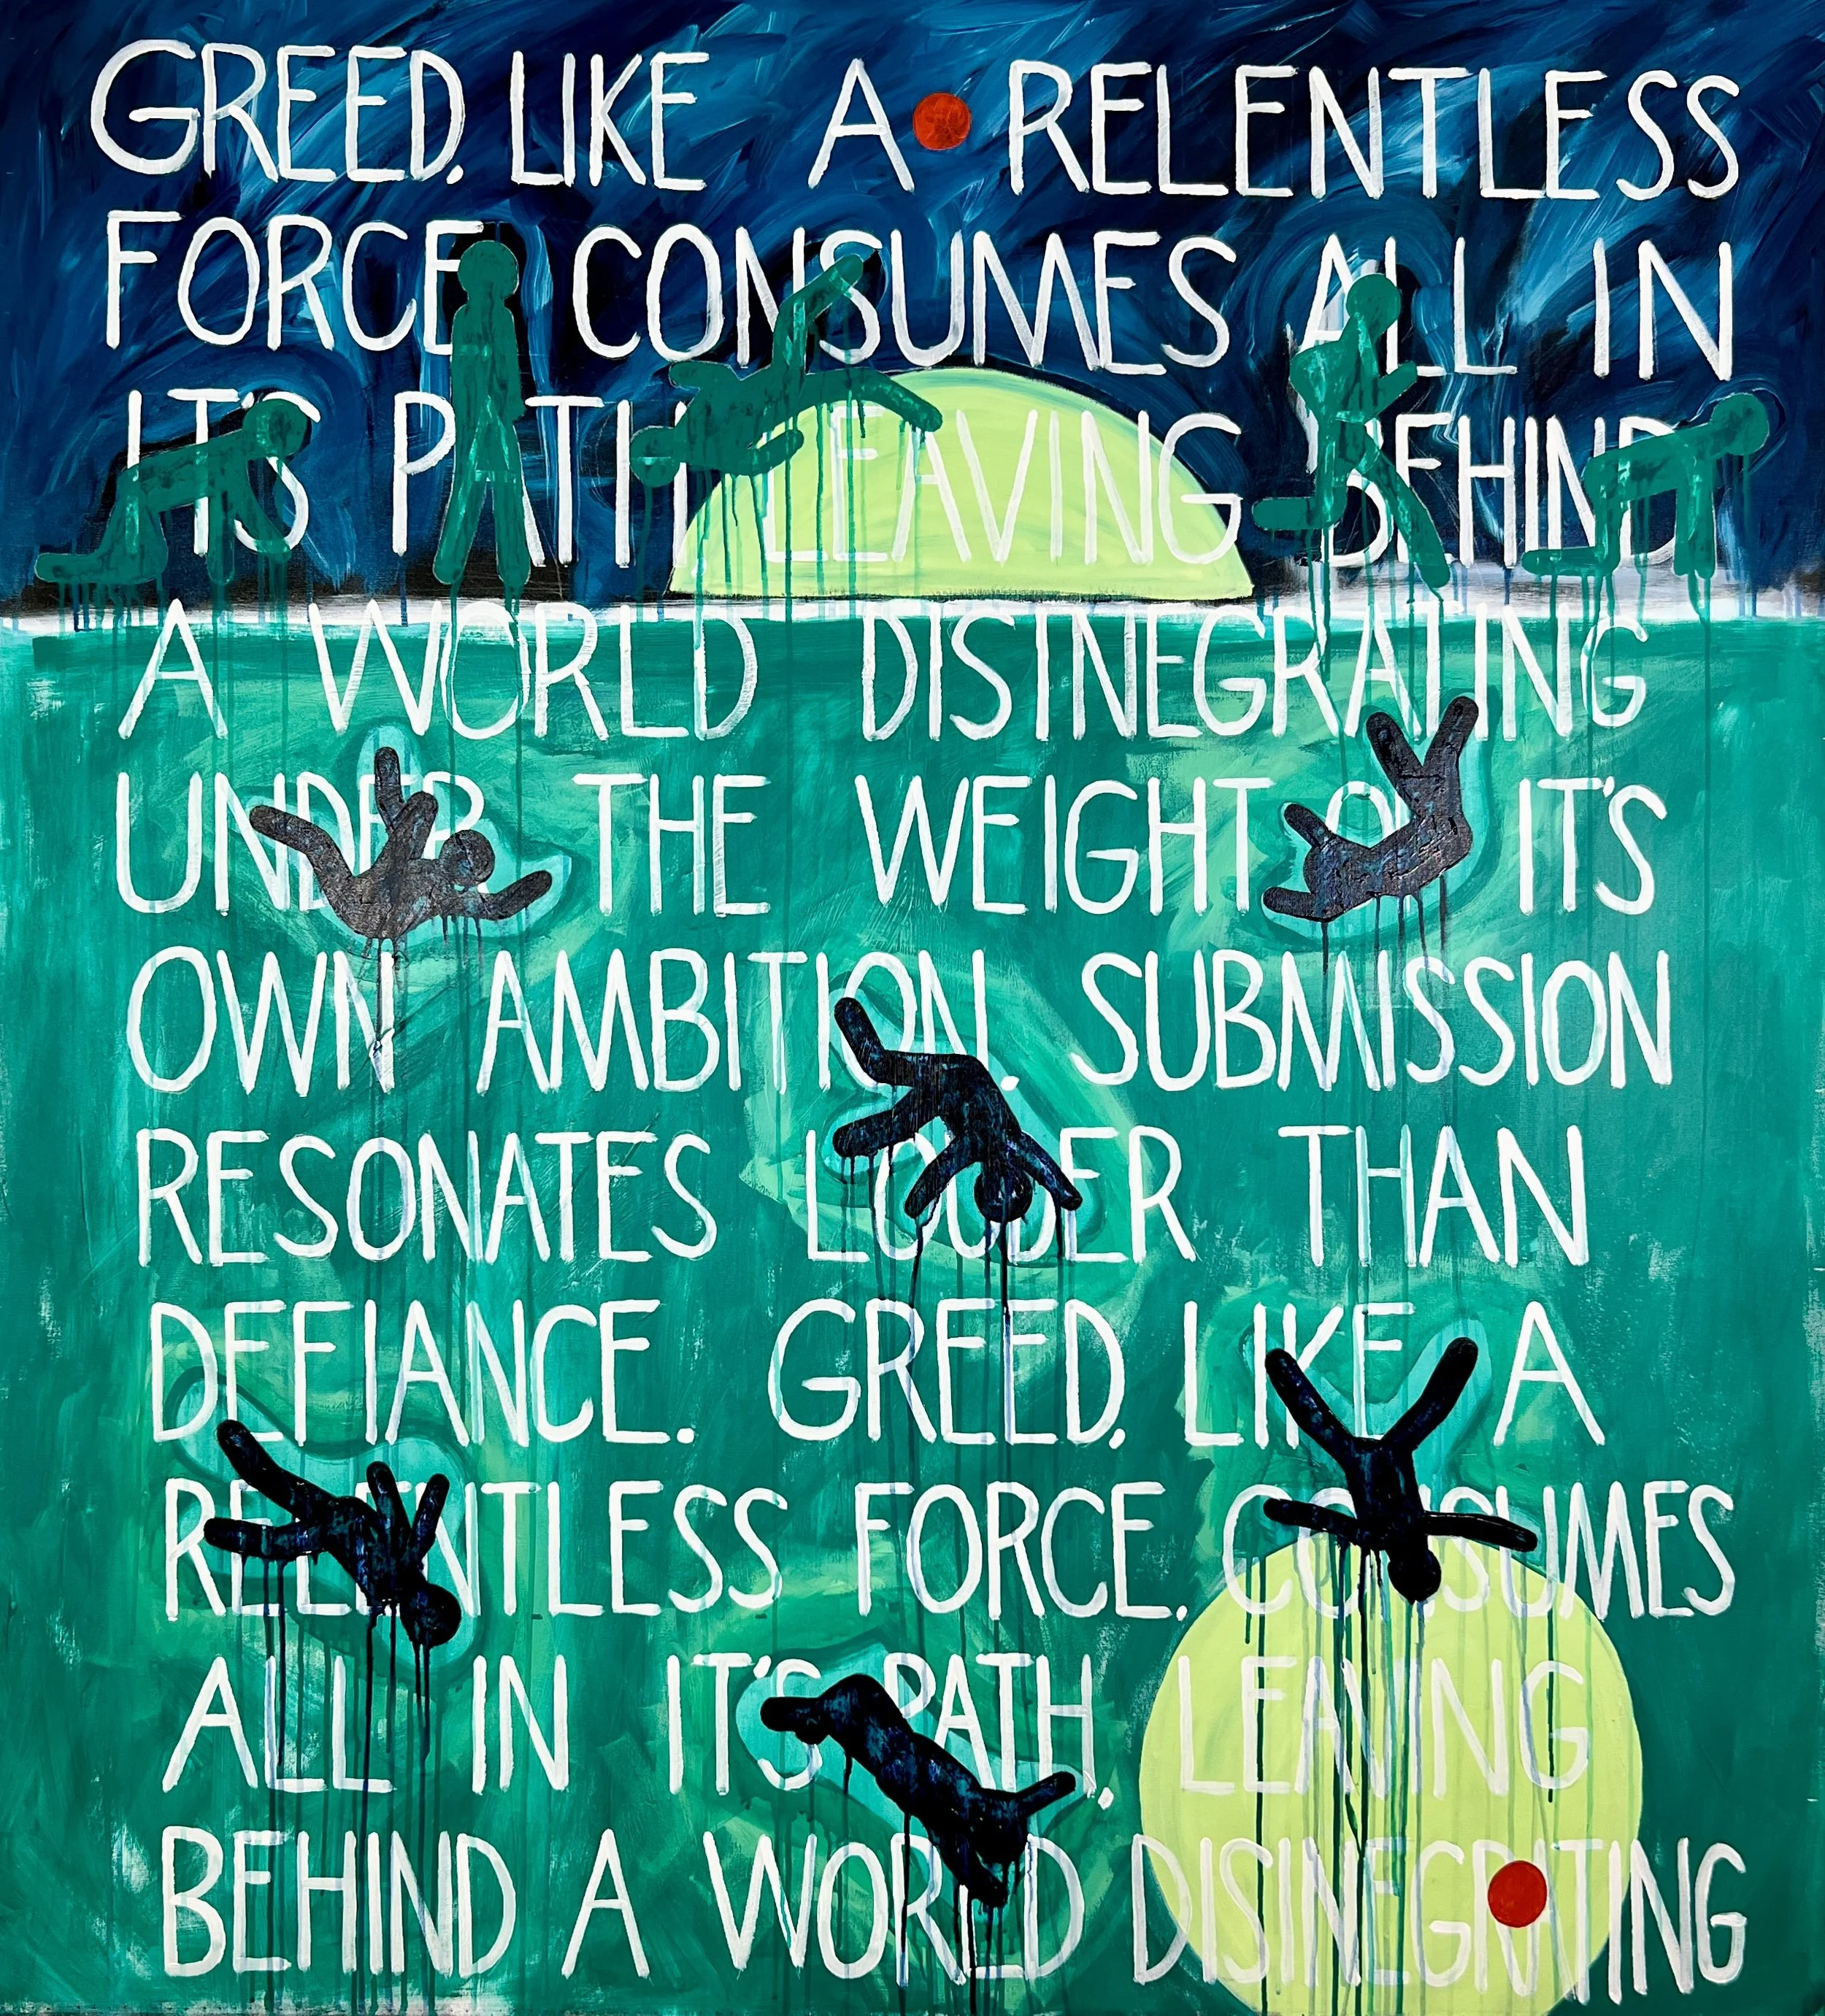 GREED, LIKE A RELENTLESS
FORCE CONSUMES ALL IN
IT'S PATH LEAVING BEHIND
A WORLD DISTNEGRATING
UNDER THE WEIGHT OF IT'S
OWN AMBITION. SUBMISSION
RESONATES LOUDER THAN
DEFIANCE. GREED, LIKE A
RELENTLESS FORCE. CONSUMES
ALL IN IT'S PATH, LEAVING
BEHIND A WORLD DISINEGRATING